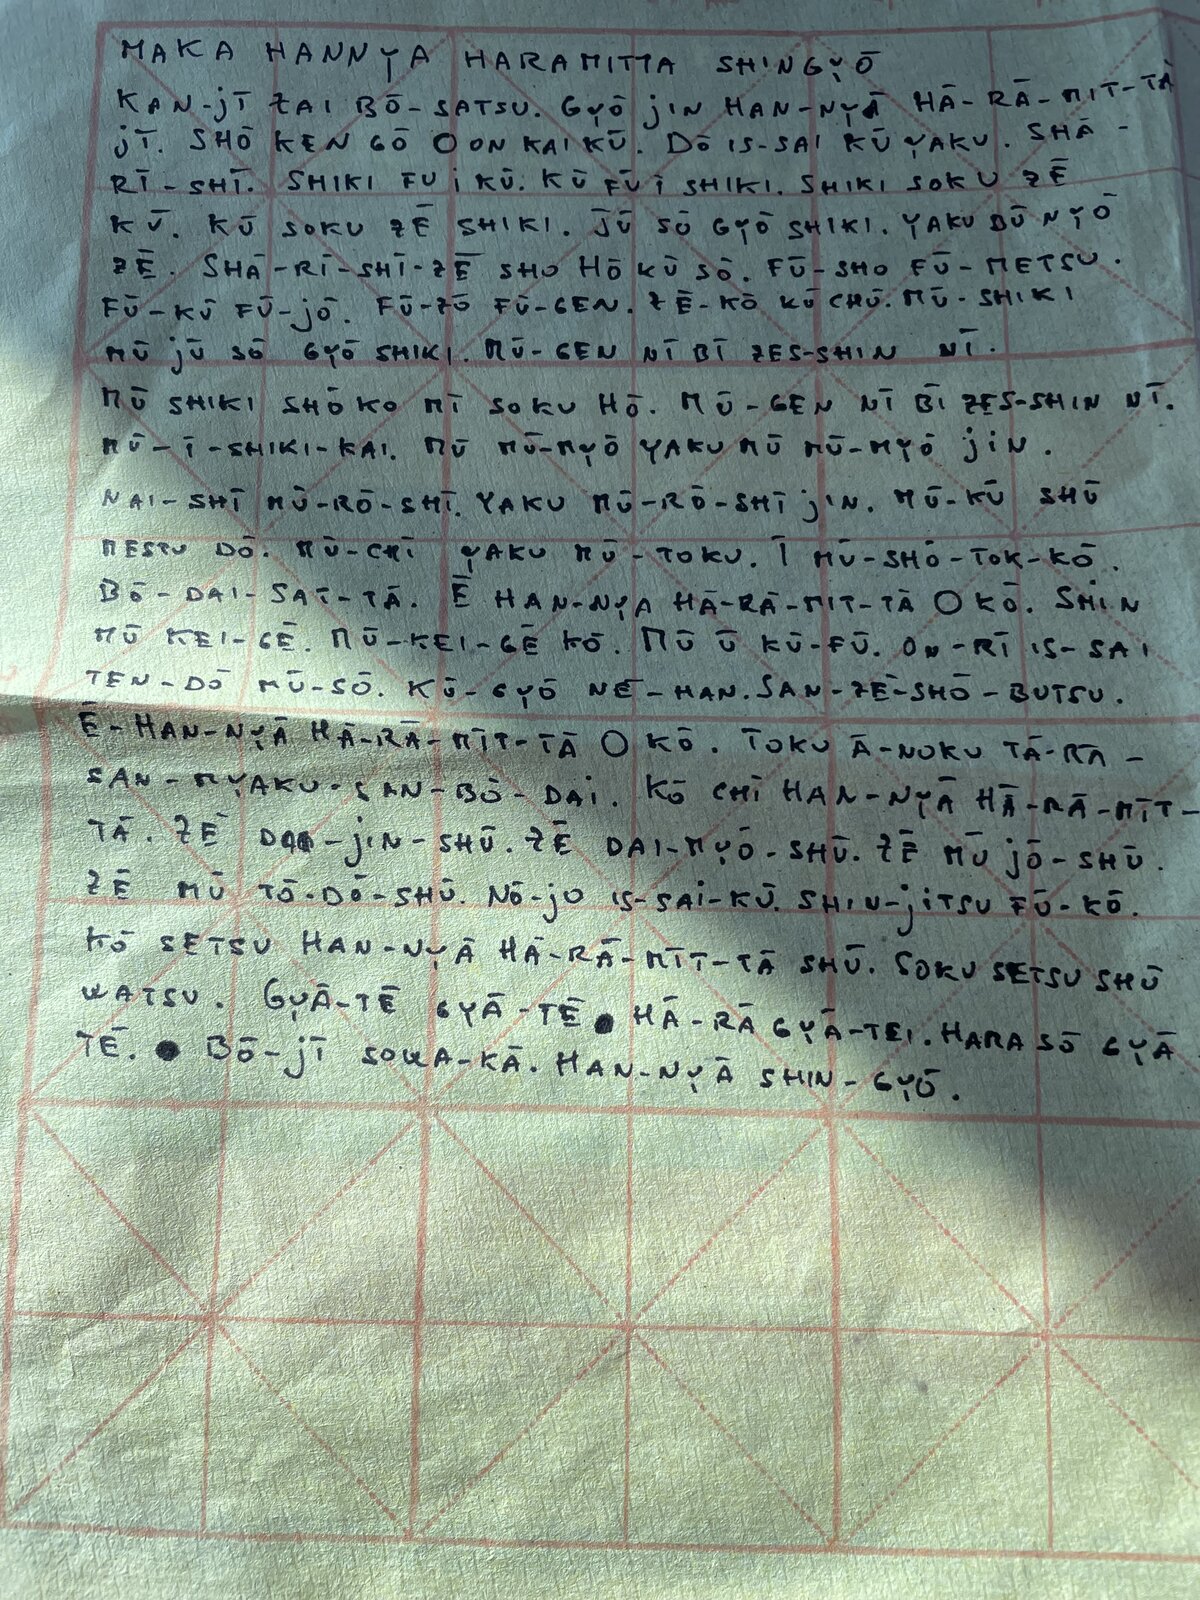 MAKA HANNYA HARAMITTA SHINGYŌ
KAN-JĪ ZAI BŌ-SATSU. GYŌ JIN HAN-NYĀ HĀ-RĀ-MIT-TĀ
JĪ. SHŌ KEN GŌ O ON KAI KŪ. DŌ IS-SAI KŪ YAKU. SHĀ-
RĪ-SHĪ. SHIKI FU I KŪ. KŪ FŪ I SHIKI. SHIKI SOKU ZĒ
KŪ. KŪ SOKU ZĒ SHIKI. JŪ SŌ GYŌ SHIKI. YAKU BŪ NYŌ
ZĒ. SHĀ-RĪ-SHĪ-ZĒ SHO HŌ KŪ SŌ. FŪ-SHO FŪ-METSU.
FŪ-KŪ FŪ-JŌ. FŪ-ZŌ FŪ-GEN. ZĒ-KŌ KŪ CHŪ. MŪ-SHIKI
MŪ JŪ SŌ GYŌ SHIKI. MŪ-GEN NĪ BĪ ZES-SHIN NĪ.
MŪ SHIKI SHŌ KO MĪ SOKU HŌ. MŪ-GEN NĪ BĪ ZES-SHIN NĪ.
MŪ-Ī-SHIKI-KAI. MŪ MŪ-MYŌ YAKU MŪ MŪ-MYŌ JIN.
NAI-SHĪ MŪ-RŌ-SHĪ. YAKU MŪ-RŌ-SHĪ JIN. MŪ-KŪ SHŪ
MESTU DŌ. MŪ-CHĪ YAKU MŪ-TOKU. Ī MŪ-SHŌ-TOK-KŌ.
BŌ-DAI-SAT-TĀ. Ē HAN-NYA HĀ-RĀ-MIT-TĀ O KŌ. SHIN
MŪ KEI-GĒ. MŪ-KEI-GĒ KŌ. MŪ Ū KŪ-FŪ. ON-RĪ IS-SAI
TEN-DŌ MŪ-SŌ. KŪ-GYŌ NĒ-HAN. SAN-ZĒ-SHŌ-BUTSU.
Ē-HAN-NYĀ HĀ-RĀ-MĪT-TĀ O KŌ. TOKU Ā-NOKU TĀ-RA-
SAN-MYAKU-SAN-BŌ-DAI. KŌ CHĪ HAN-NYĀ HĀ-RĀ-MĪT-
TĀ. ZĒ DAI-JIN-SHŪ. ZĒ DAI-MYŌ-SHŪ. ZĒ MŪ JŌ-SHŪ.
ZĒ MŪ TŌ-DŌ-SHŪ. NŌ-JO IS-SAI-KŪ. SHIN-JITSU FŪ-KŌ.
KŌ SETSU HAN-NYĀ HĀ-RĀ-MĪT-TĀ SHŪ. SOKU SETSU SHŪ
WATSU. GYĀ-TĒ GYĀ-TĒ. HĀ-RĀ GYĀ-TEI. HARA SŌ GYĀ
TĒ. BŌ-JĪ SOWA-KĀ. HAN-NYĀ SHIN-GYŌ.